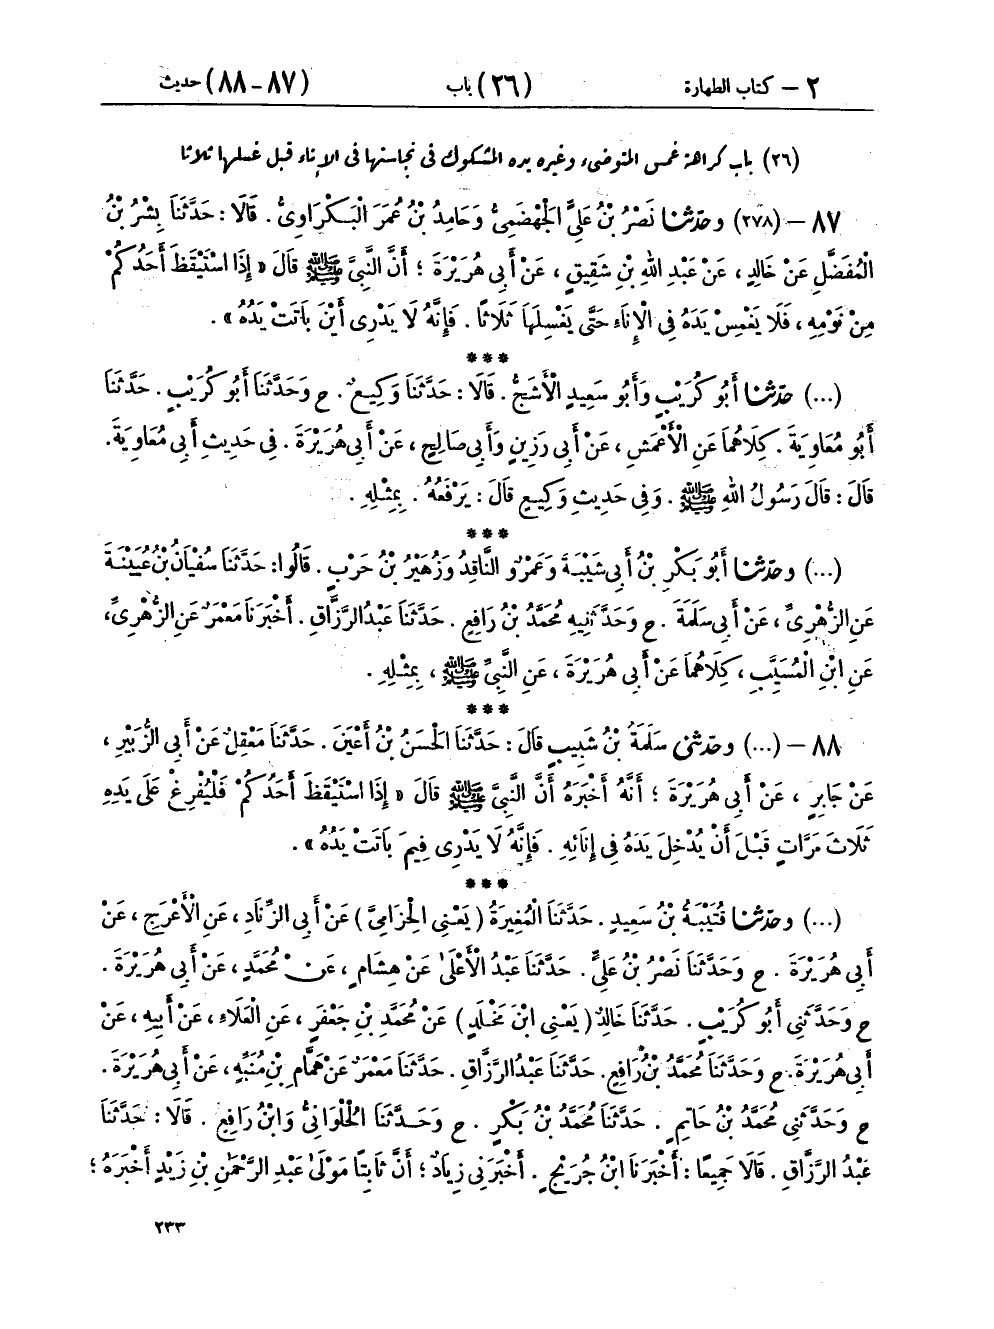 ٢ – كتاب الطهارة (٢٦) باب (٨٧-٨٨) حديث
(٢٦) باب كراهة غمس المتوضئ وغيره يده المشكوك فى نجاستها فى الإناء قبل غسلها ثلاثا
٨٧ – (٢٧٨) وحدّثنا نَصْرُ بْنُ عَلِيٍّ الْجَهْضَمِىُّ وَحَامِدُ بْنُ عُمَرَ الْبَكْرَاوِىُّ . قَالَا : حَدَّثَنَا بِشْرُ بْنُ
الْمُفَضَّلِ عَنْ خَالِدٍ ، عَنْ عَبْدِ اللهِ بْنِ شَقِيقٍ ، عَنْ أَبِى هُرَيْرَةَ ؛ أَنَّ النَّبِىَّ ﷺ قَالَ « إِذَا اسْتَيْقَظَ أَحَدُكُمْ
مِنْ نَوْمِهِ ، فَلَا يَغْمِسْ يَدَهُ فِى الْإِنَاءِ حَتَّى يَغْسِلَهَا ثَلَاثًا . فَإِنَّهُ لَا يَدْرِى أَيْنَ بَاتَتْ يَدُهُ » .
***
(...) حدّثنا أَبُو كُرَيْبٍ وَأَبُو سَعِيدٍ الْأَشَجُّ . قَالَا : حَدَّثَنَا وَكِيعٌ . ح وَحَدَّثَنَا أَبُو كُرَيْبٍ . حَدَّثَنَا
أَبُو مُعَاوِيَةَ . كِلَاهُمَا عَنِ الْأَعْمَشِ ، عَنْ أَبِى رَزِينٍ وَأَبِى صَالِحٍ ، عَنْ أَبِى هُرَيْرَةَ . فِى حَدِيثِ أَبِى مُعَاوِيَةَ .
قَالَ : قَالَ رَسُولُ اللهِ ﷺ . وَفِى حَدِيثِ وَكِيعٍ قَالَ : يَرْفَعُهُ . بِمِثْلِهِ .
***
(...) وحدّثنا أَبُو بَكْرِ بْنُ أَبِى شَيْبَةَ وَعَمْرٌو النَّاقِدُ وَزُهَيْرُ بْنُ حَرْبٍ . قَالُوا : حَدَّثَنَا سُفْيَانُ بْنُ عُيَيْنَةَ
عَنِ الزُّهْرِىِّ ، عَنْ أَبِى سَلَمَةَ . ح وَحَدَّثَنِيهِ مُحَمَّدُ بْنُ رَافِعٍ . حَدَّثَنَا عَبْدُ الرَّزَّاقِ . أَخْبَرَنَا مَعْمَرٌ عَنِ الزُّهْرِىِّ ،
عَنِ ابْنِ الْمُسَيَّبِ ، كِلَاهُمَا عَنْ أَبِى هُرَيْرَةَ ، عَنِ النَّبِىِّ ﷺ ، بِمِثْلِهِ .
***
٨٨ – (...) وحدّثنى سَلَمَةُ بْنُ شَبِيبٍ قَالَ : حَدَّثَنَا الْحَسَنُ بْنُ أَعْيَنَ . حَدَّثَنَا مَعْقِلٌ عَنْ أَبِى الزُّبَيْرِ ،
عَنْ جَابِرٍ ، عَنْ أَبِى هُرَيْرَةَ ؛ أَنَّهُ أَخْبَرَهُ أَنَّ النَّبِىَّ ﷺ قَالَ « إِذَا اسْتَيْقَظَ أَحَدُكُمْ فَلْيُفْرِغْ عَلَى يَدِهِ
ثَلَاثَ مَرَّاتٍ قَبْلَ أَنْ يُدْخِلَ يَدَهُ فِى إِنَائِهِ . فَإِنَّهُ لَا يَدْرِى فِيمَ بَاتَتْ يَدُهُ » .
***
(...) وحدّثنا قُتَيْبَةُ بْنُ سَعِيدٍ . حَدَّثَنَا الْمُغِيرَةُ ( يَعْنِى الْحِزَامِىَّ ) عَنْ أَبِى الزِّنَادِ ، عَنِ الْأَعْرَجِ ، عَنْ
أَبِى هُرَيْرَةَ . ح وَحَدَّثَنَا نَصْرُ بْنُ عَلِيٍّ . حَدَّثَنَا عَبْدُ الْأَعْلَىٰ عَنْ هِشَامٍ ، عَنْ مُحَمَّدٍ ، عَنْ أَبِى هُرَيْرَةَ .
ح وَحَدَّثَنِى أَبُو كُرَيْبٍ . حَدَّثَنَا خَالِدٌ ( يَعْنِى ابْنَ مَخْلَدٍ ) عَنْ مُحَمَّدِ بْنِ جَعْفَرٍ ، عَنِ الْعَلَاءِ ، عَنْ أَبِيهِ ، عَنْ
أَبِى هُرَيْرَةَ . ح وَحَدَّثَنَا مُحَمَّدُ بْنُ رَافِعٍ . حَدَّثَنَا عَبْدُ الرَّزَّاقِ . حَدَّثَنَا مَعْمَرٌ عَنْ هَمَّامِ بْنِ مُنَبِّهٍ ، عَنْ أَبِى هُرَيْرَةَ .
ح وَحَدَّثَنِى مُحَمَّدُ بْنُ حَاتِمٍ . حَدَّثَنَا مُحَمَّدُ بْنُ بَكْرٍ . ح وَحَدَّثَنَا الْحُلْوَانِىُّ وَابْنُ رَافِعٍ . قَالَا : حَدَّثَنَا
عَبْدُ الرَّزَّاقِ . قَالَا جَمِيعًا : أَخْبَرَنَا ابْنُ جُرَيْجٍ . أَخْبَرَنِى زِيَادٌ ؛ أَنَّ ثَابِتًا مَوْلَىٰ عَبْدِ الرَّحْمٰنِ بْنِ زَيْدٍ أَخْبَرَهُ ؛
٢٣٣